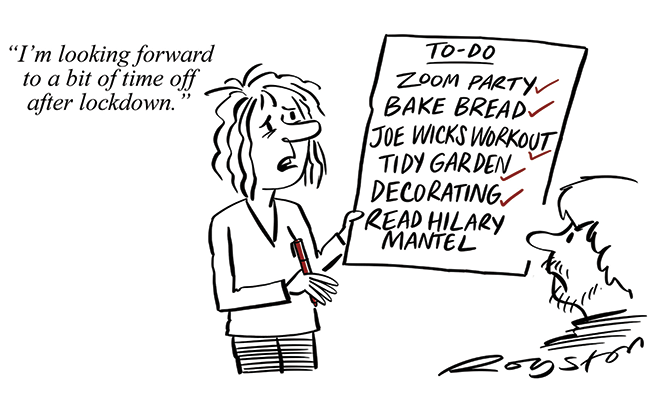 “I’m looking forward
to a bit of time off
after lockdown.”
TO-DO
ZOOM PARTY
BAKE BREAD
JOE WICKS WORKOUT
TIDY GARDEN
DECORATING
READ HILARY
MANTEL
Royston